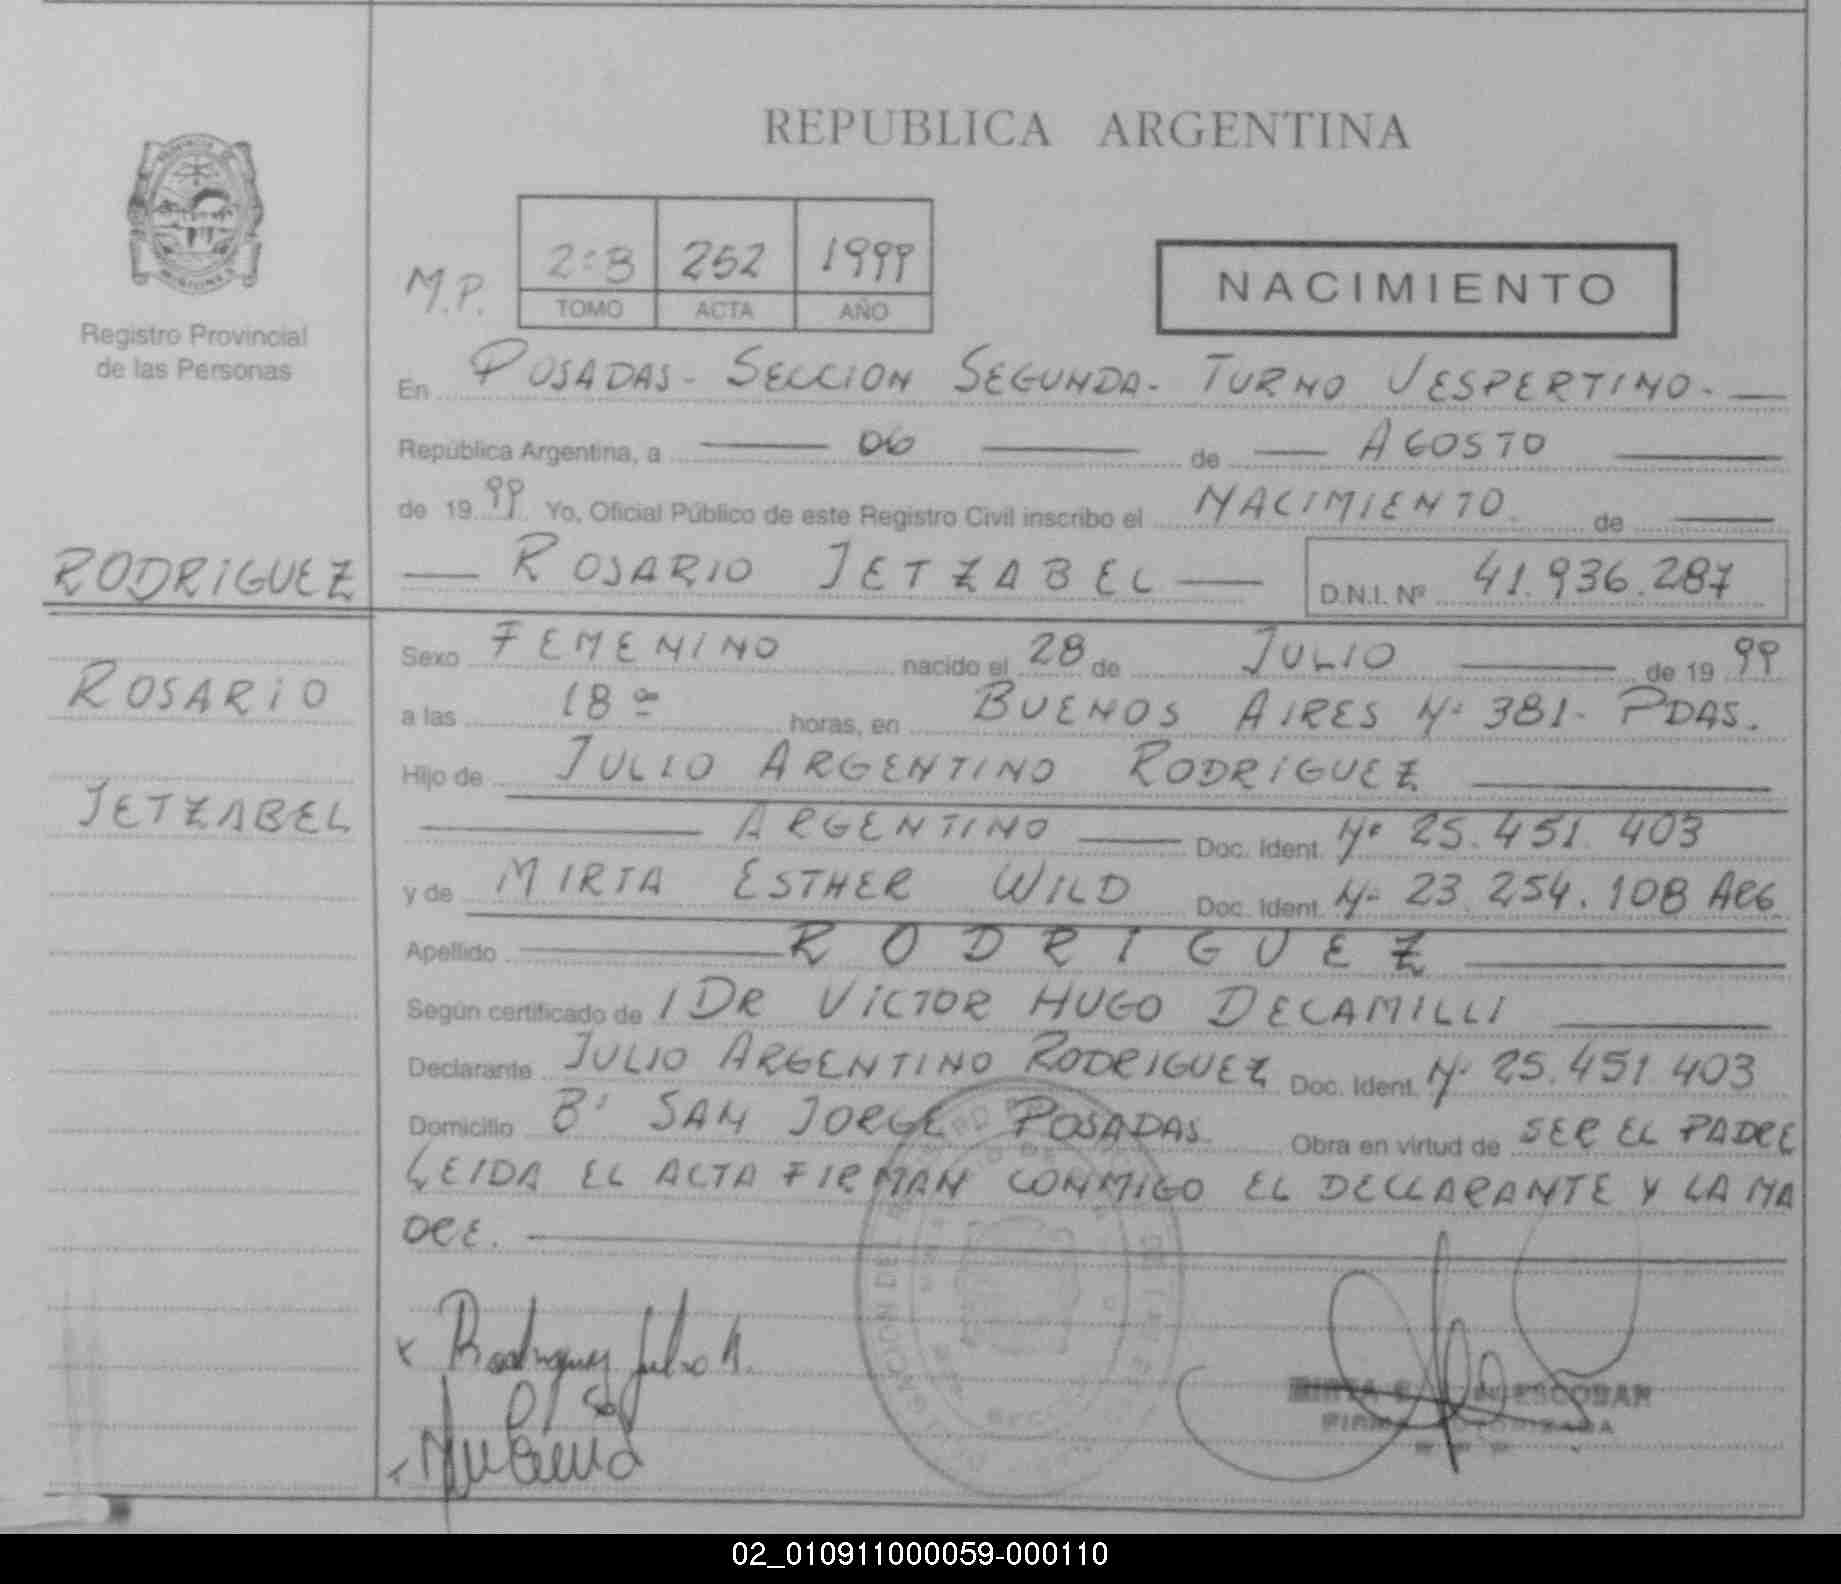 REPUBLICA ARGENTINA
Registro Provincial
de las Personas
M.P.
2:B 252 1999
TOMO ACTA AÑO
NACIMIENTO
En POSADAS- SECCION SEGUNDA- TURNO VESPERTINO.
República Argentina, a 06 de AGOSTO
de 19 99 Yo, Oficial Público de este Registro Civil inscribo el NACIMIENTO de
RODRIGUEZ
ROSARIO JETZABEL D.N.I. Nº 41.936.287
Sexo FEMENINO nacido el 28 de JULIO de 19 99
ROSARIO
a las 18 horas, en BUENOS AIRES Nº 381- PDAS.
Hijo de JULIO ARGENTINO RODRIGUEZ
JETZABEL
ARGENTINO Doc. Ident. Nº 25.451.403
y de MIRTA ESTHER WILD Doc. Ident. Nº 23.254.108 ARG.
Apellido RODRIGUEZ
Según certificado de 1 DR VICTOR HUGO DECAMILLI
Declarante JULIO ARGENTINO RODRIGUEZ Doc. Ident. Nº 25.451.403
Domicilio Bº SAN JORGE POSADAS Obra en virtud de SER EL PADRE
LEIDA EL ACTA FIRMAN CONMIGO EL DECLARANTE Y LA MA
DRE.
Rodriguez Julio A.
ESCOBAR
02_010911000059-000110